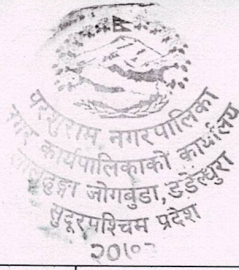 परशुराम नगरपालिका
नगर कार्यपालिकाको कार्यालय
जोगबुडा, डडेल्धुरा
सुदूरपश्चिम प्रदेश